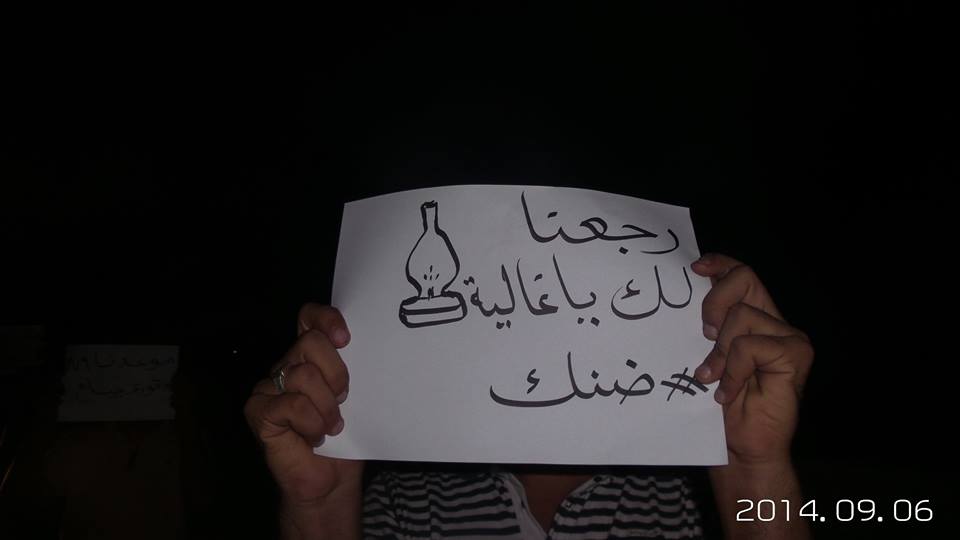 رجعنا
لك يا غالية
#ضنك
2014.09.06